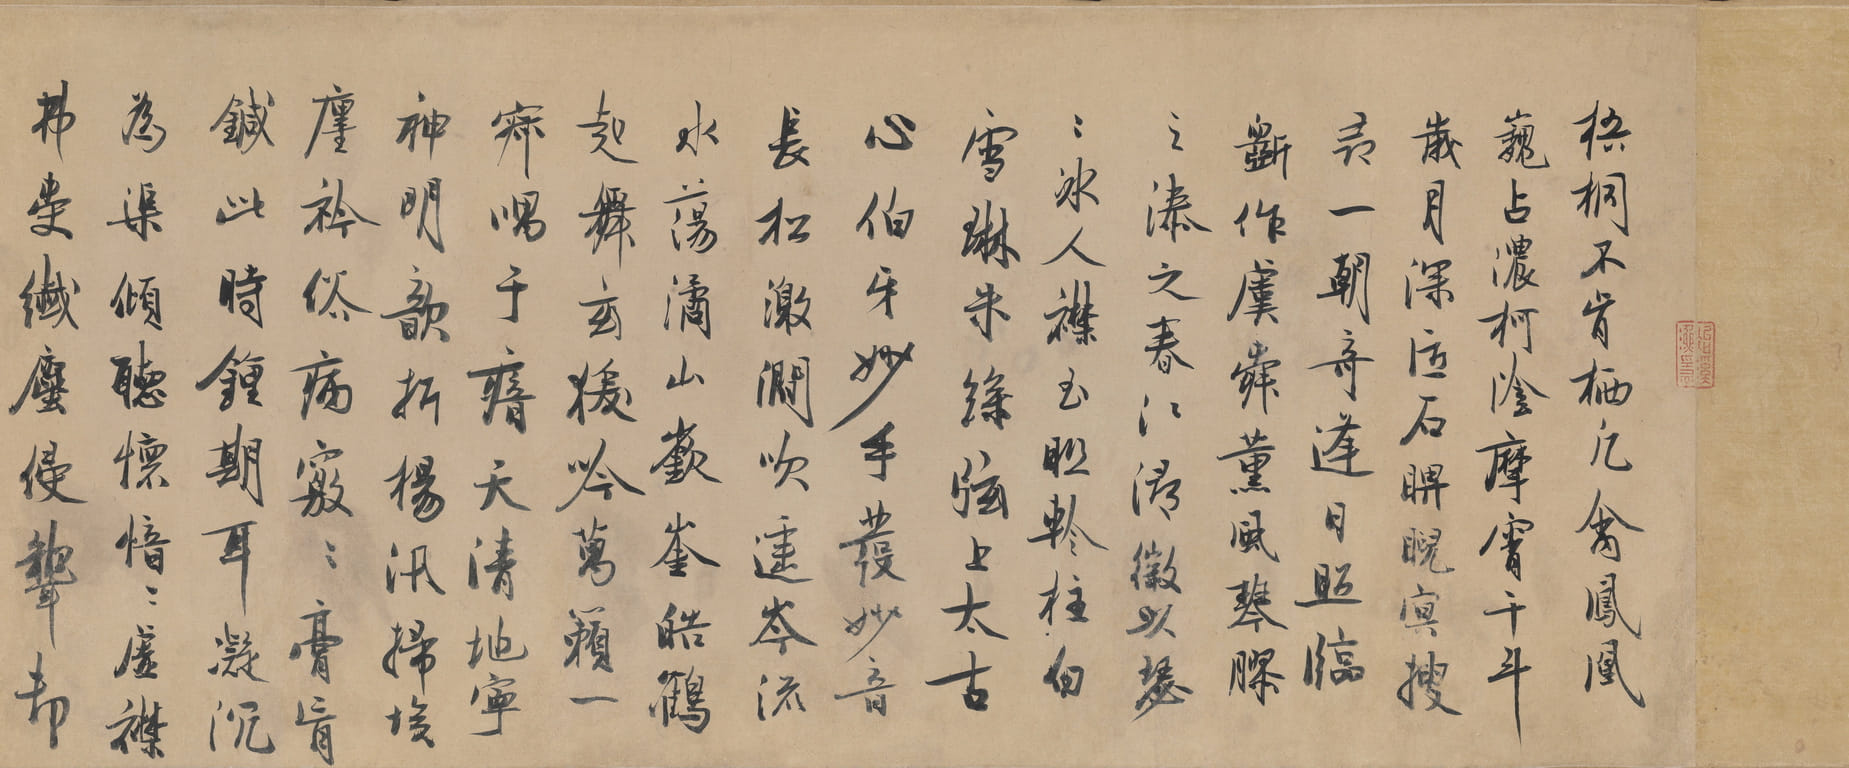 梧桐不肯栖凡禽鳳凰
巍占濃柯陰摩霄干斗
歲月深匠石睥睨冥搜
尋一朝奇逢日照臨
斵作虞舜薰風琴膠
之漆之春江潯徽以瑟
〻冰人襟玉軫柱白
雪琳朱絲弦上太古
心伯牙妙手發妙音
長松激澗吹遠岑流
水蕩潏山嶔崟皓鶴
起舞玄猨吟萬籟一
寂喁于瘖天清地寧
神明歆折楊汛掃埃
塵衿俗病竅〻膏肓
鍼此時鍾期耳凝沉
為渠傾聽懷愔〻虛襟
弗受纖塵侵 却